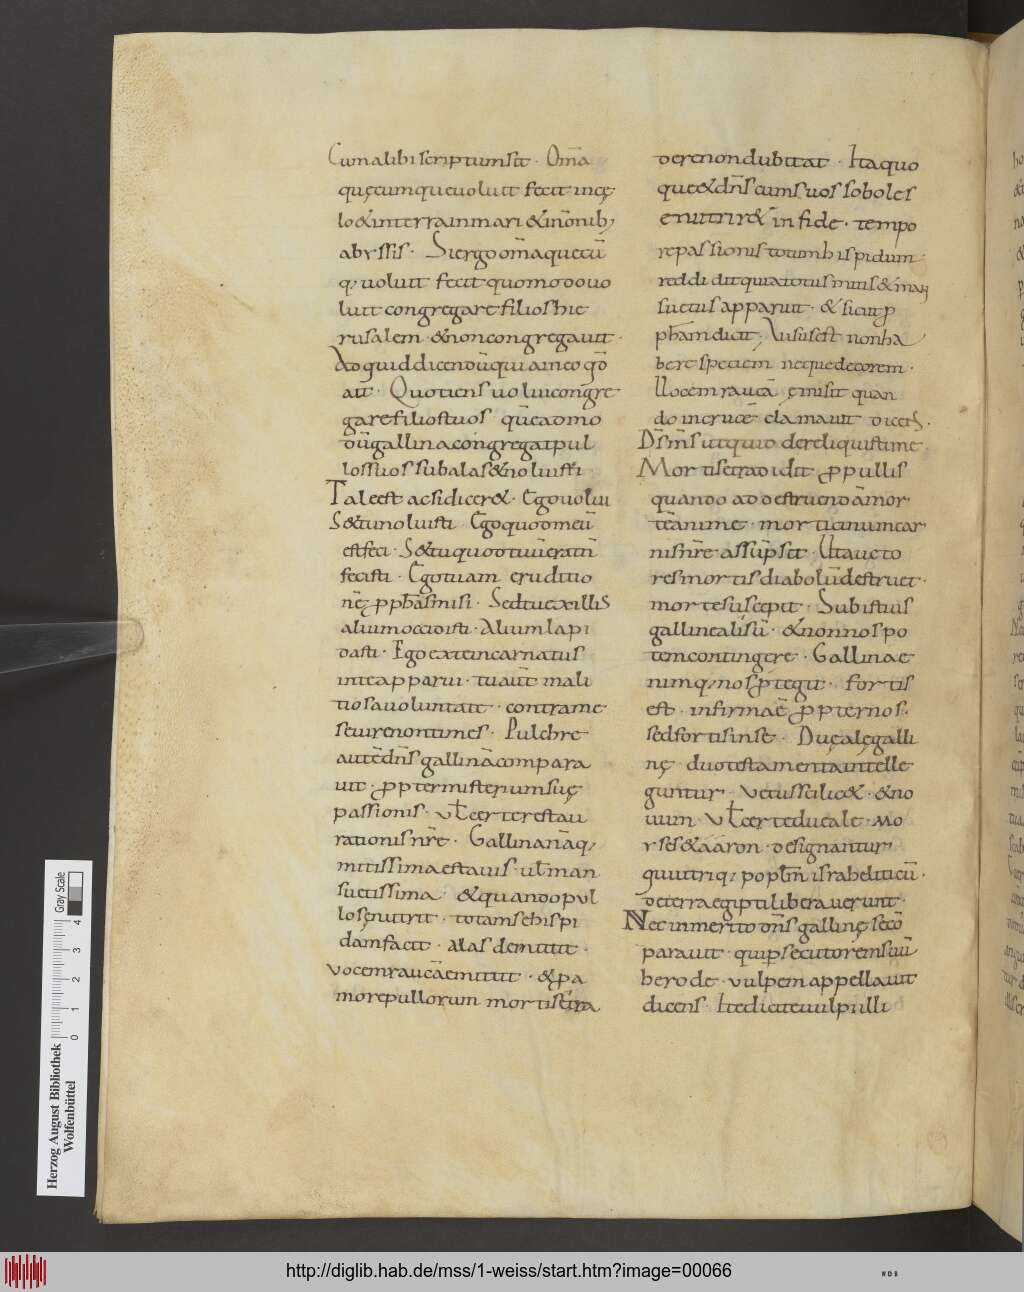 Cum alibi scriptum sit · Om̄a
quęcumque uoluit fecit incę
lo & interra inmari & inōnib;
abyssis · Si ergo om̄a quecū
q; uoluit fecit quomodo uo
luit congregare filios hie
rusalem · & non congregauit ·
Ad quid dicendū quia in eo qđ
ait · Quotiens uolui congre
gare filios tuos quēadmo
dū gallina congregat pul
los suos sub alas & noluisti
Tale est ac si dicer& · Ego uolui
S& tu noluisti · Ego quod meū
est feci · S& tu quod tuū erat n̄
fecisti · Ego tuam eruditio
nē ꝓph&as misi · Sed tu ex illis
alium occidisti · Alium lapi
dasti · Ego ex te incarnatus
in te apparui · tu aut̄ mali
tiosa uoluntate · contra me
seuire non times · Pulchre
autē dn̄s gallinā compara
uit ꝓpter misterium suę
passionis · ut̄ certe restau
rationis nr̄e · Gallina nāq;
mitissima est auis · ut̄ man
suetissima · & quando pul
los enutrit · totam se hispi
dam facit · alas demittit ·
vocem raucā emittit · & p̱ a
more pullorum mortis c̄tra
dere non dubitat · Itaquo
que & dn̄s cum suos soboles
enutrir& in fide · tempo
re passionis totum hispidum
reddidit quia totus mitis & man
suetus apparuit · & sicut ꝓ
ph̄am dicit · Uisus est non ha
bere speciem neque decorem ·
Uocem raucā emisit quan
do in cruce clamauit dicens ·
D̄s m̄s utquid dereliquisti me
Mortis & tradidit ꝓ pullis
quando ad destruendā mor
tē animę · morticinum car
nis nr̄e assūpsit · Ut aucto
res mortis diabolū destruet ·
mortē suscepit · Sub istius
galline alis ū · & non nos po
tem contingere · Gallina e
nim q; nos ꝓtegit · fortis
est · infirma ē ꝓpter nos ·
sed fortis in se · Duę ale galli
nę · duo testamenta intelle
guntur · vetus scilic& · & no
uum · ut̄ certe due ale · Mo
yses & aaron · designantur ·
qui utriq; poplm̄ israheliticū ·
de terra egipti liberauerunt ·
Nec inmerito dn̄s gallinę se cō
parauit · qui p̱secutorem suū
herode · vulpem appellauit
dicens · Ite dicite uulpi illi
Herzog August Bibliothek
Wolfenbüttel
Gray Scale
0 1 2 3 4
http://diglib.hab.de/mss/1-weiss/start.htm?image=00066